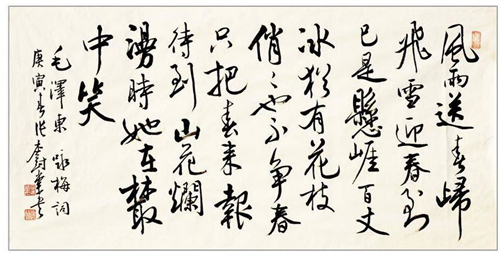 風雨送春歸
飛雪迎春到
已是懸崖百丈
冰猶有花枝
俏〻也不争春
只把春来報
待到山花爛
漫時她在叢
中笑
毛澤東 詠梅詞
庚寅春